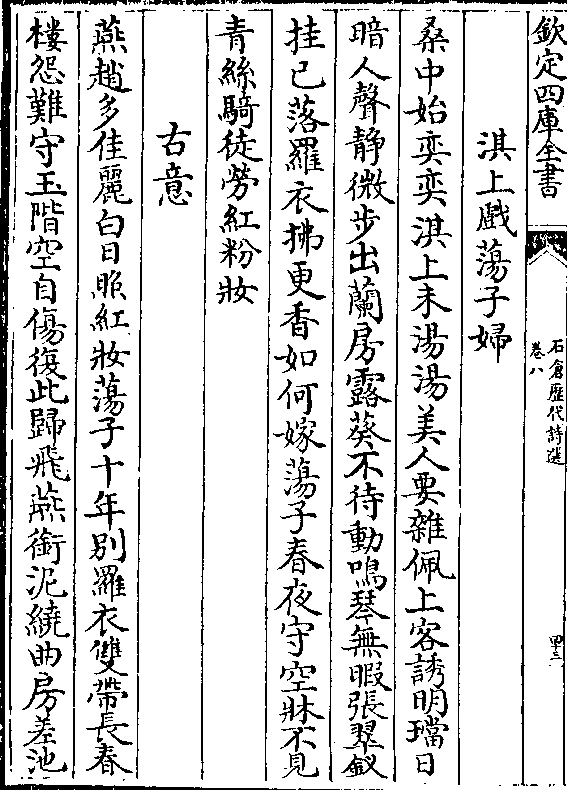 欽定四庫全書
石倉歷代詩選
卷八
淇上戲蕩子婦
桑中始奕奕淇上未湯湯美人要雜佩上客誘明璫日
暗人聲静微步出蘭房露葵不待動鳴琴無暇張翠釵
挂已落羅衣拂更香如何嫁蕩子春夜守空牀不見
青絲騎徒勞紅粉妝
古意
燕趙多佳麗白日照紅妝蕩子十年别羅衣雙帶長春
樓怨難守玉階空自傷復此歸飛燕銜泥繞曲房差池